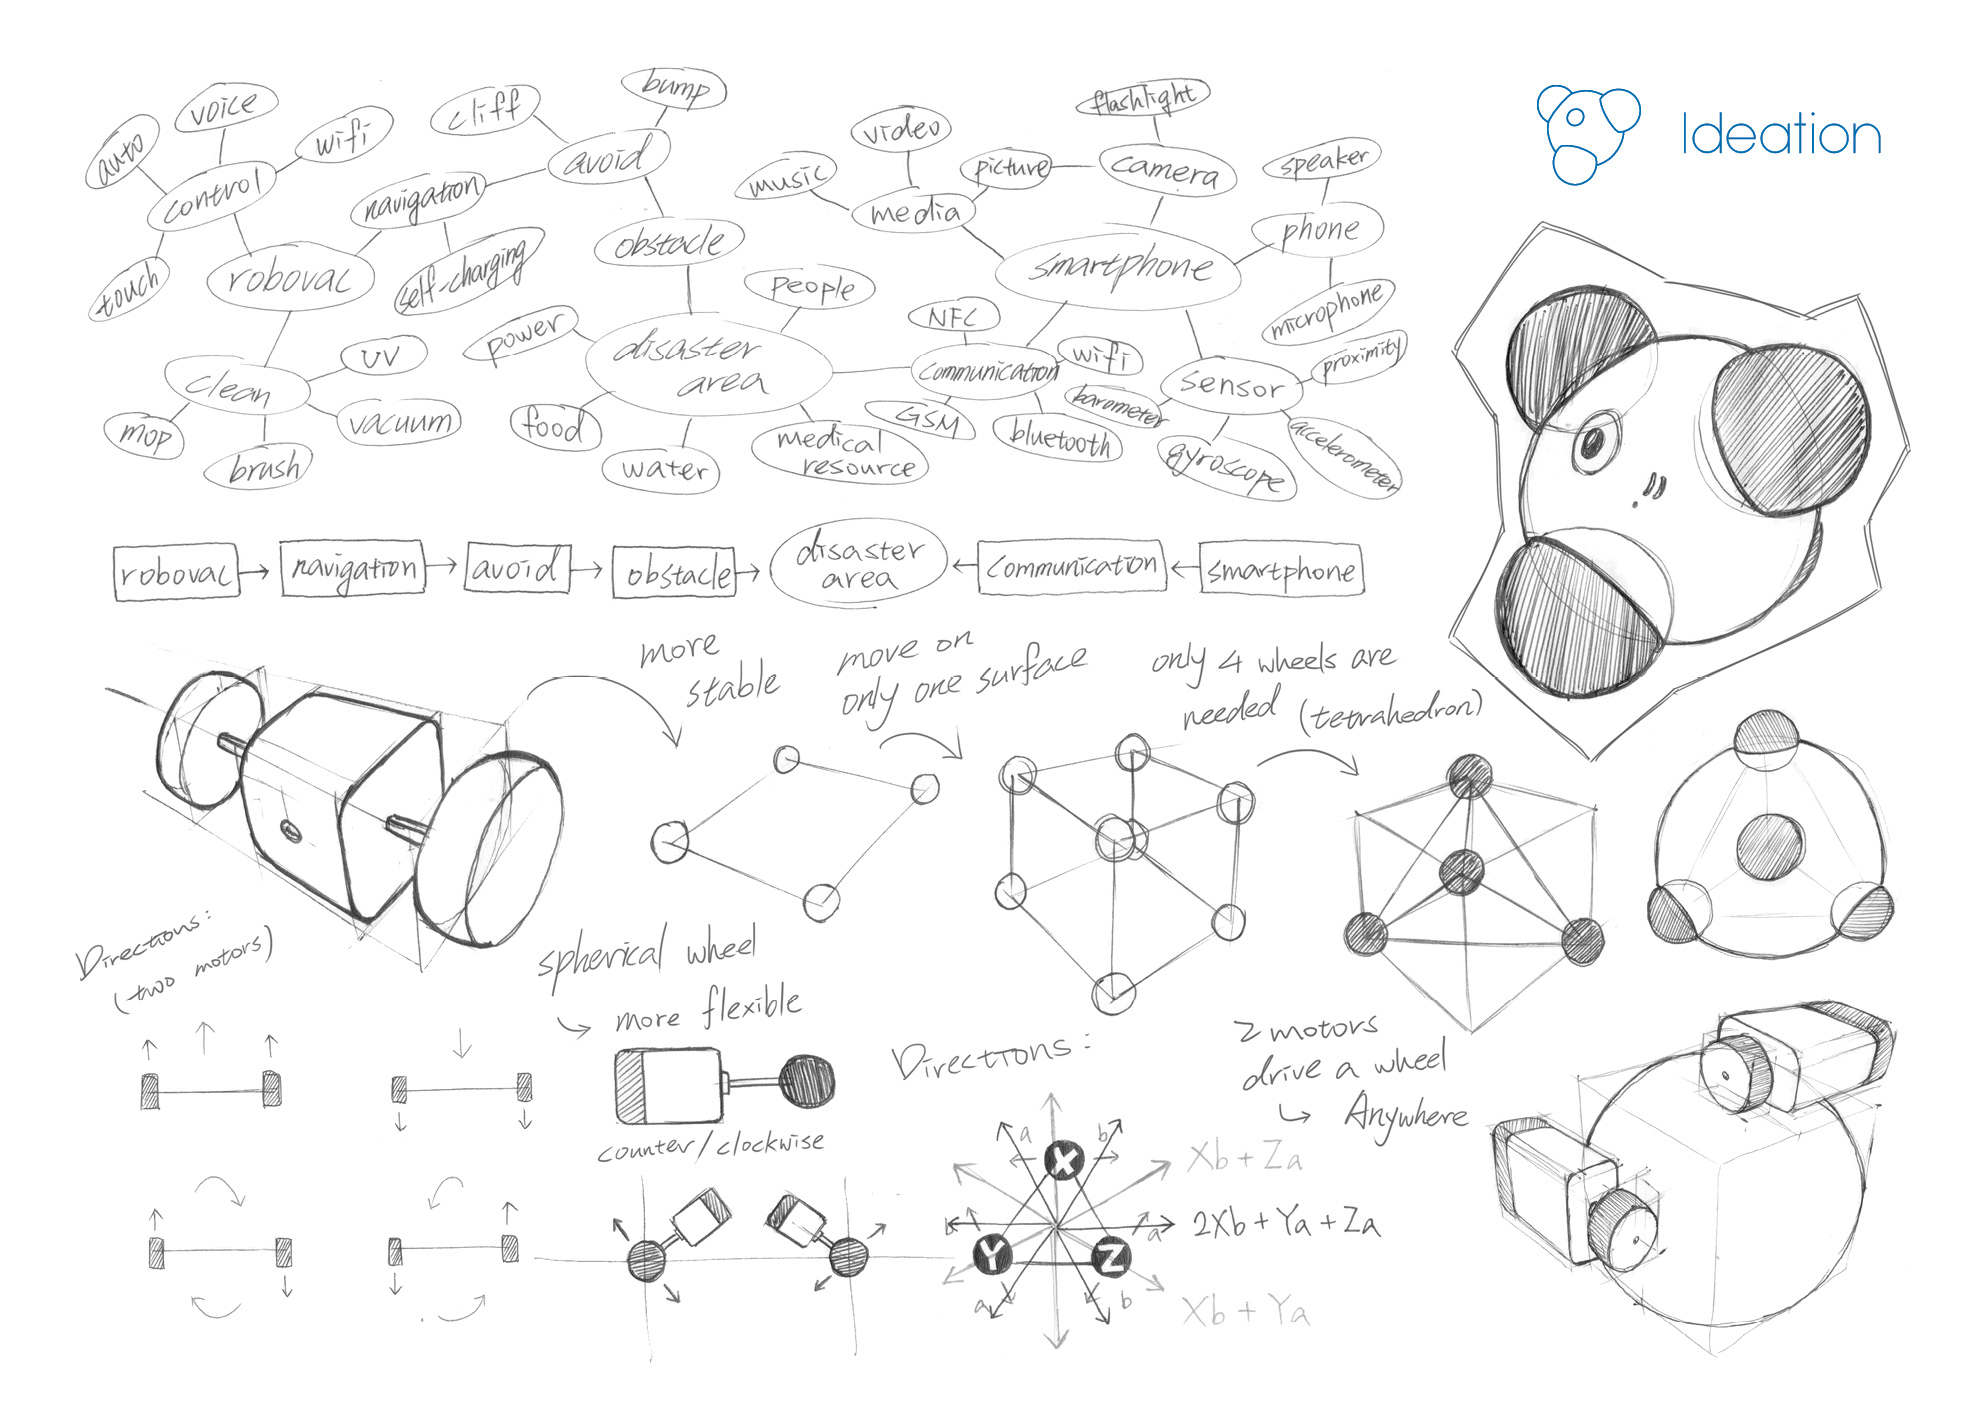 Ideation
auto
voice
wifi
control
touch
robovac
navigation
self-charging
cliff
bump
avoid
obstacle
clean
UV
vacuum
mop
brush
power
people
disaster
area
food
water
medical
resource
music
video
picture
media
flashlight
camera
speaker
phone
microphone
smartphone
NFC
communication
wifi
GSM
bluetooth
sensor
proximity
barometer
gyroscope
accelerometer
robovac
navigation
avoid
obstacle
disaster
area
communication
smartphone
more
stable
move on
only one surface
only 4 wheels are
needed (tetrahedron)
Directions:
(two motors)
spherical wheel
more flexible
counter/clockwise
Directions:
2 motors
drive a wheel
Anywhere
a
b
X
b
a
Y
Z
a
b
Xb + Za
2Xb + Ya + Za
Xb + Ya